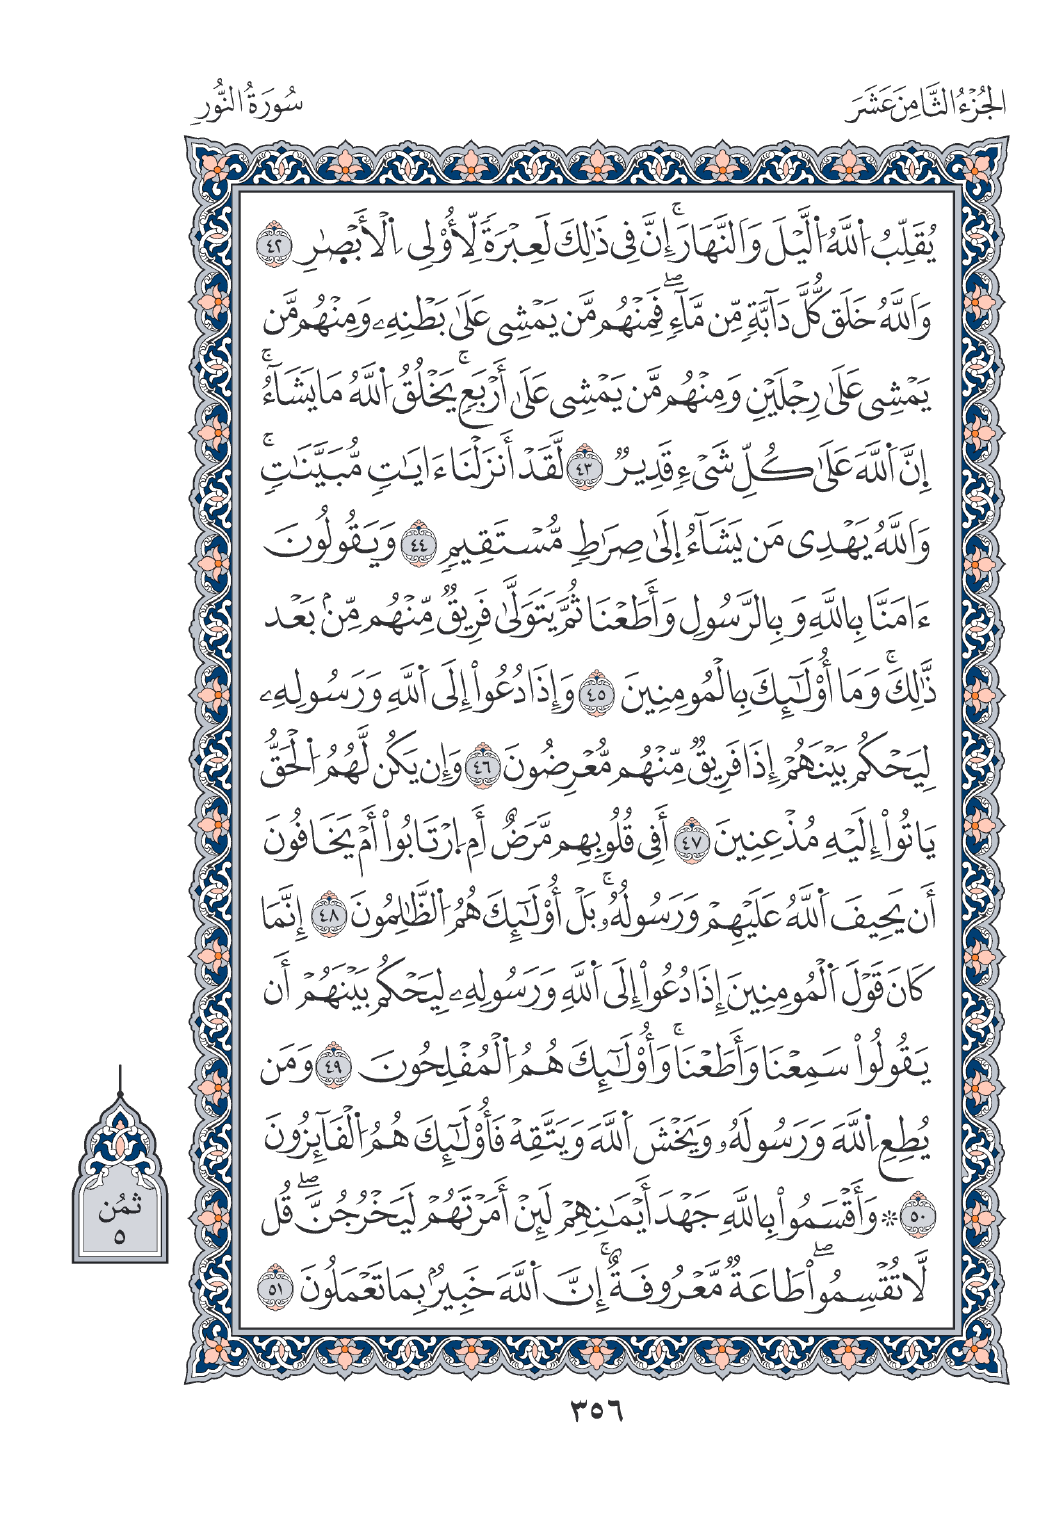 الجُزْءُ الثَّامِنَ عَشَرَ
سُورَةُ النُّورِ
يُقَلِّبُ اُللَّهُ اُلَّيْلَ وَالنَّهَارَۚ إِنَّ فِى ذَٰلِكَ لَعِبْرَةٗ لِّأُوْلِى اِلْأَبْصٰ۪رِ ٤٢
وَاَللَّهُ خَلَقَ كُلَّ دَآبَّةٖ مِّن مَّآءٖۖ فَمِنْهُم مَّن يَمْشِى عَلَىٰ بَطْنِهِۦ وَمِنْهُم مَّن
يَمْشِى عَلَىٰ رِجْلَيْنِ وَمِنْهُم مَّن يَمْشِى عَلَىٰ أَرْبَعٖۚ يَخْلُقُ اُللَّهُ مَا يَشَآءُۚ
إِنَّ اَللَّهَ عَلَىٰ كُلِّ شَىْءٖ قَدِيرٞ ٤٣ لَّقَدْ أَنزَلْنَا ءَايَٰتٖ مُّبَيَّنَٰتٖۚ
وَاَللَّهُ يَهْدِى مَن يَشَآءُ إِلَىٰ صِرَٰطٖ مُّسْتَقِيمٖ ٤٤ وَيَقُولُونَ
ءَامَنَّا بِاللَّهِ وَبِالرَّسُولِ وَأَطَعْنَا ثُمَّ يَتَوَلَّىٰ فَرِيقٞ مِّنْهُم مِّنۢ بَعْد
ذَّٰلِكَۚ وَمَا أُوْلَٰٓئِكَ بِالْمُومِنِينَ ٤٥ وَإِذَا دُعُواْ إِلَى اَللَّهِ وَرَسُولِهِۦ
لِيَحْكُم بَيْنَهُمْ إِذَا فَرِيقٞ مِّنْهُم مُّعْرِضُونَ ٤٦ وَإِن يَكُن لَّهُمُ اُلْحَقُّ
يَاتُواْ إِلَيْهِ مُذْعِنِينَ ٤٧ أَفِى قُلُوبِهِم مَّرَضٌ أَمِ اِرْتَابُواْ أَمْ يَخَافُونَ
أَن يَحِيفَ اَللَّهُ عَلَيْهِمْ وَرَسُولُهُۥۚ بَلْ أُوْلَٰٓئِكَ هُمُ اُلظَّٰلِمُونَ ٤٨ إِنَّمَا
كَانَ قَوْلَ اَلْمُومِنِينَ إِذَا دُعُواْ إِلَى اَللَّهِ وَرَسُولِهِۦ لِيَحْكُم بَيْنَهُمْ أَن
يَقُولُواْ سَمِعْنَا وَأَطَعْنَاۚ وَأُوْلَٰٓئِكَ هُمُ اُلْمُفْلِحُونَ ٤٩ وَمَن
يُطِعِ اِللَّهَ وَرَسُولَهُۥ وَيَخْشَ اَللَّهَ وَيَتَّقِهْ فَأُوْلَٰٓئِكَ هُمُ اُلْفَآئِزُونَ
٥٠ ۞ وَأَقْسَمُواْ بِاللَّهِ جَهْدَ أَيْمَٰنِهِمْ لَئِنْ أَمَرْتَهُمْ لَيَخْرُجُنَّۖ قُل
لَّا تُقْسِمُواْۖ طَاعَةٞ مَّعْرُوفَةٌۚ إِنَّ اَللَّهَ خَبِيرُۢ بِمَا تَعْمَلُونَ ٥١
ثُمُن
٥
٣٥٦